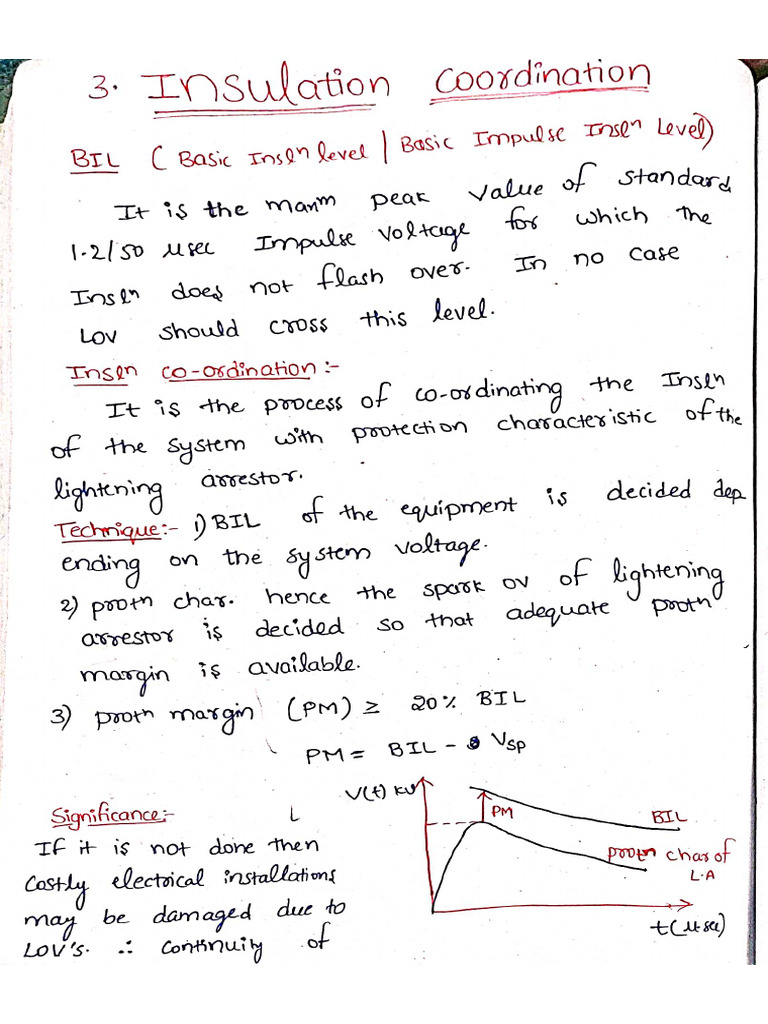 3. Insulation Coordination
BIL ( Basic Insln level | Basic Impulse Insln Level)
It is the maxm peak value of standard
1.2/50 μsec Impulse voltage for which the
Insln does not flash over. In no case
LOV should cross this level.
Insln co-ordination :-
It is the process of co-ordinating the Insln
of the system with protection characteristic of the
lightening arrestor.
Technique:- 1) BIL of the equipment is decided dep
ending on the system voltage.
2) protn char. hence the spark ov of lightening
arrestor is decided so that adequate protn
margin is available.
3) protn margin (PM) ≥ 20% BIL
PM = BIL - Vsp
Significance:-
If it is not done then
Costly electrical installations
may be damaged due to
LOV's. ∴ continuity of
V(t) kV
PM
BIL
protn char of
L.A
t(μsec)